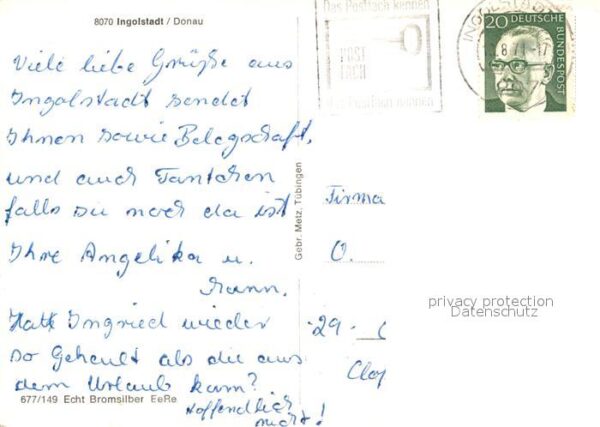 8070 Ingolstadt / Donau
Viele liebe Grüße aus
Ingolstadt sendet
Ihnen sowie Belegschaft,
und auch Tantchen
falls sie noch da ist
Ihre Angelika u.
Mann.
Hatt Ingried wieder
so Geheult als die aus
dem Urlaub kam?
Hoffendlich
nicht!
677/149 Echt Bromsilber EeRe
Gebr. Metz, Tübingen
Das Postfach kennen
POST
FACH
INGOLSTADT
20 DEUTSCHE
BUNDESPOST
Firma
O.
29
privacy protection
Datenschutz